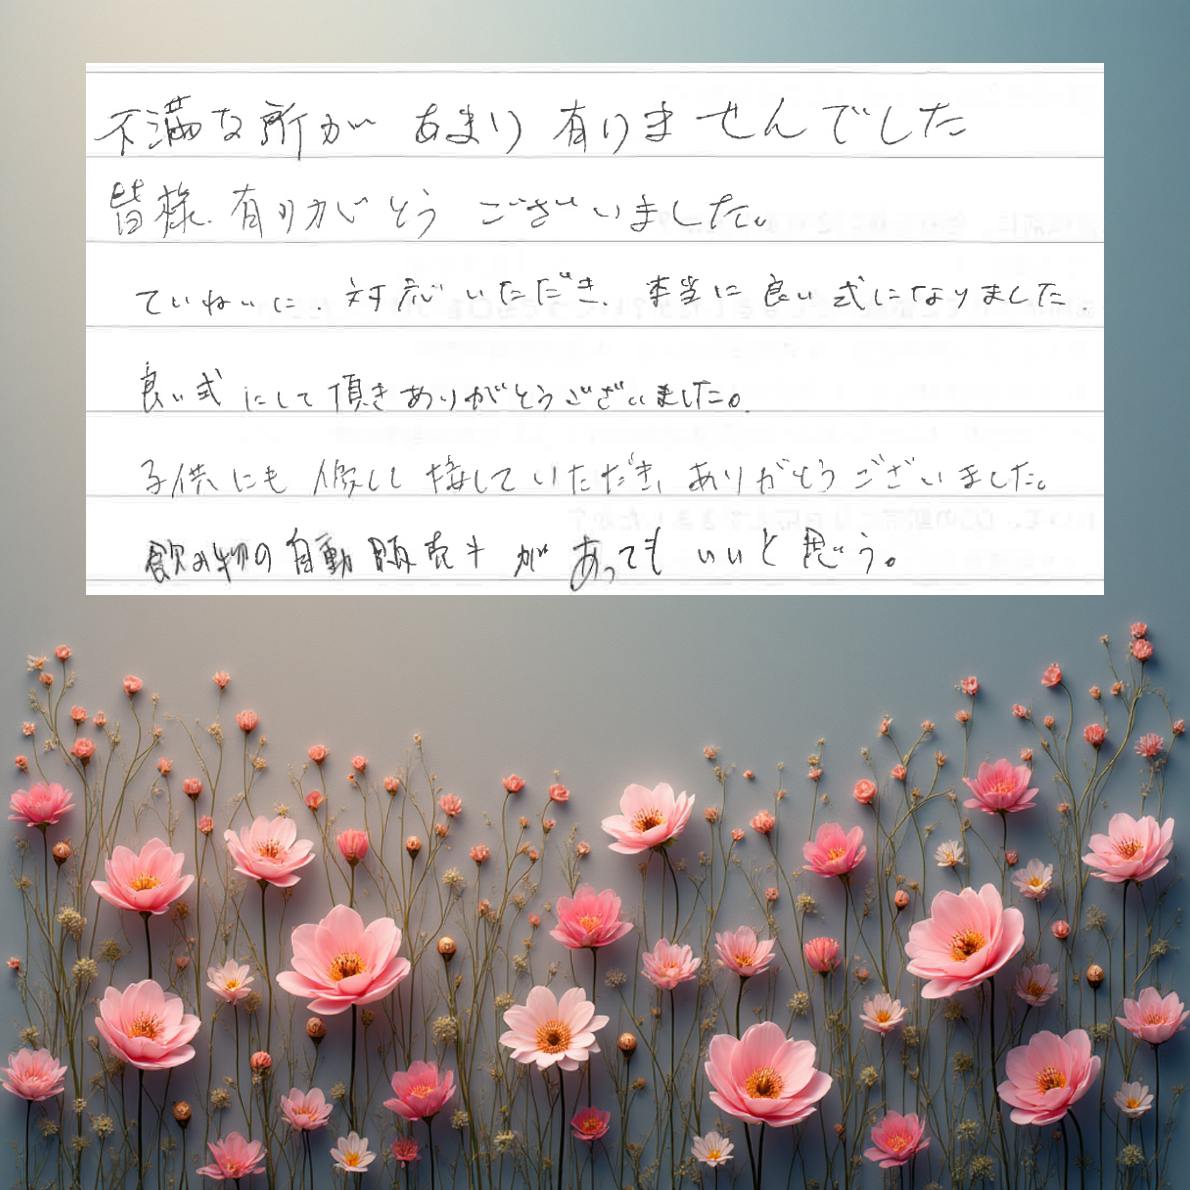 不満な所が あまり 有りませんでした
皆様.有りがとう ございました。
ていねいに.対応いただき.本当に良い式になりました.
良い式にして頂きありがとうございました。
子供にも優しく接していただき、ありがとうございました。
飲み物の自動販売キがあってもいいと思う。